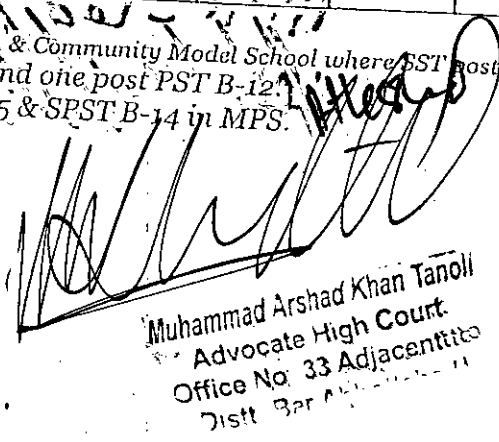 & Community Model School where SST post
nd one post PST B-12.
5 & SPST B-14 in MPS.
Attested
Muhammad Arshad Khan Tanoli
Advocate High Court.
Office No. 33 Adjacent to
Distt. Bar